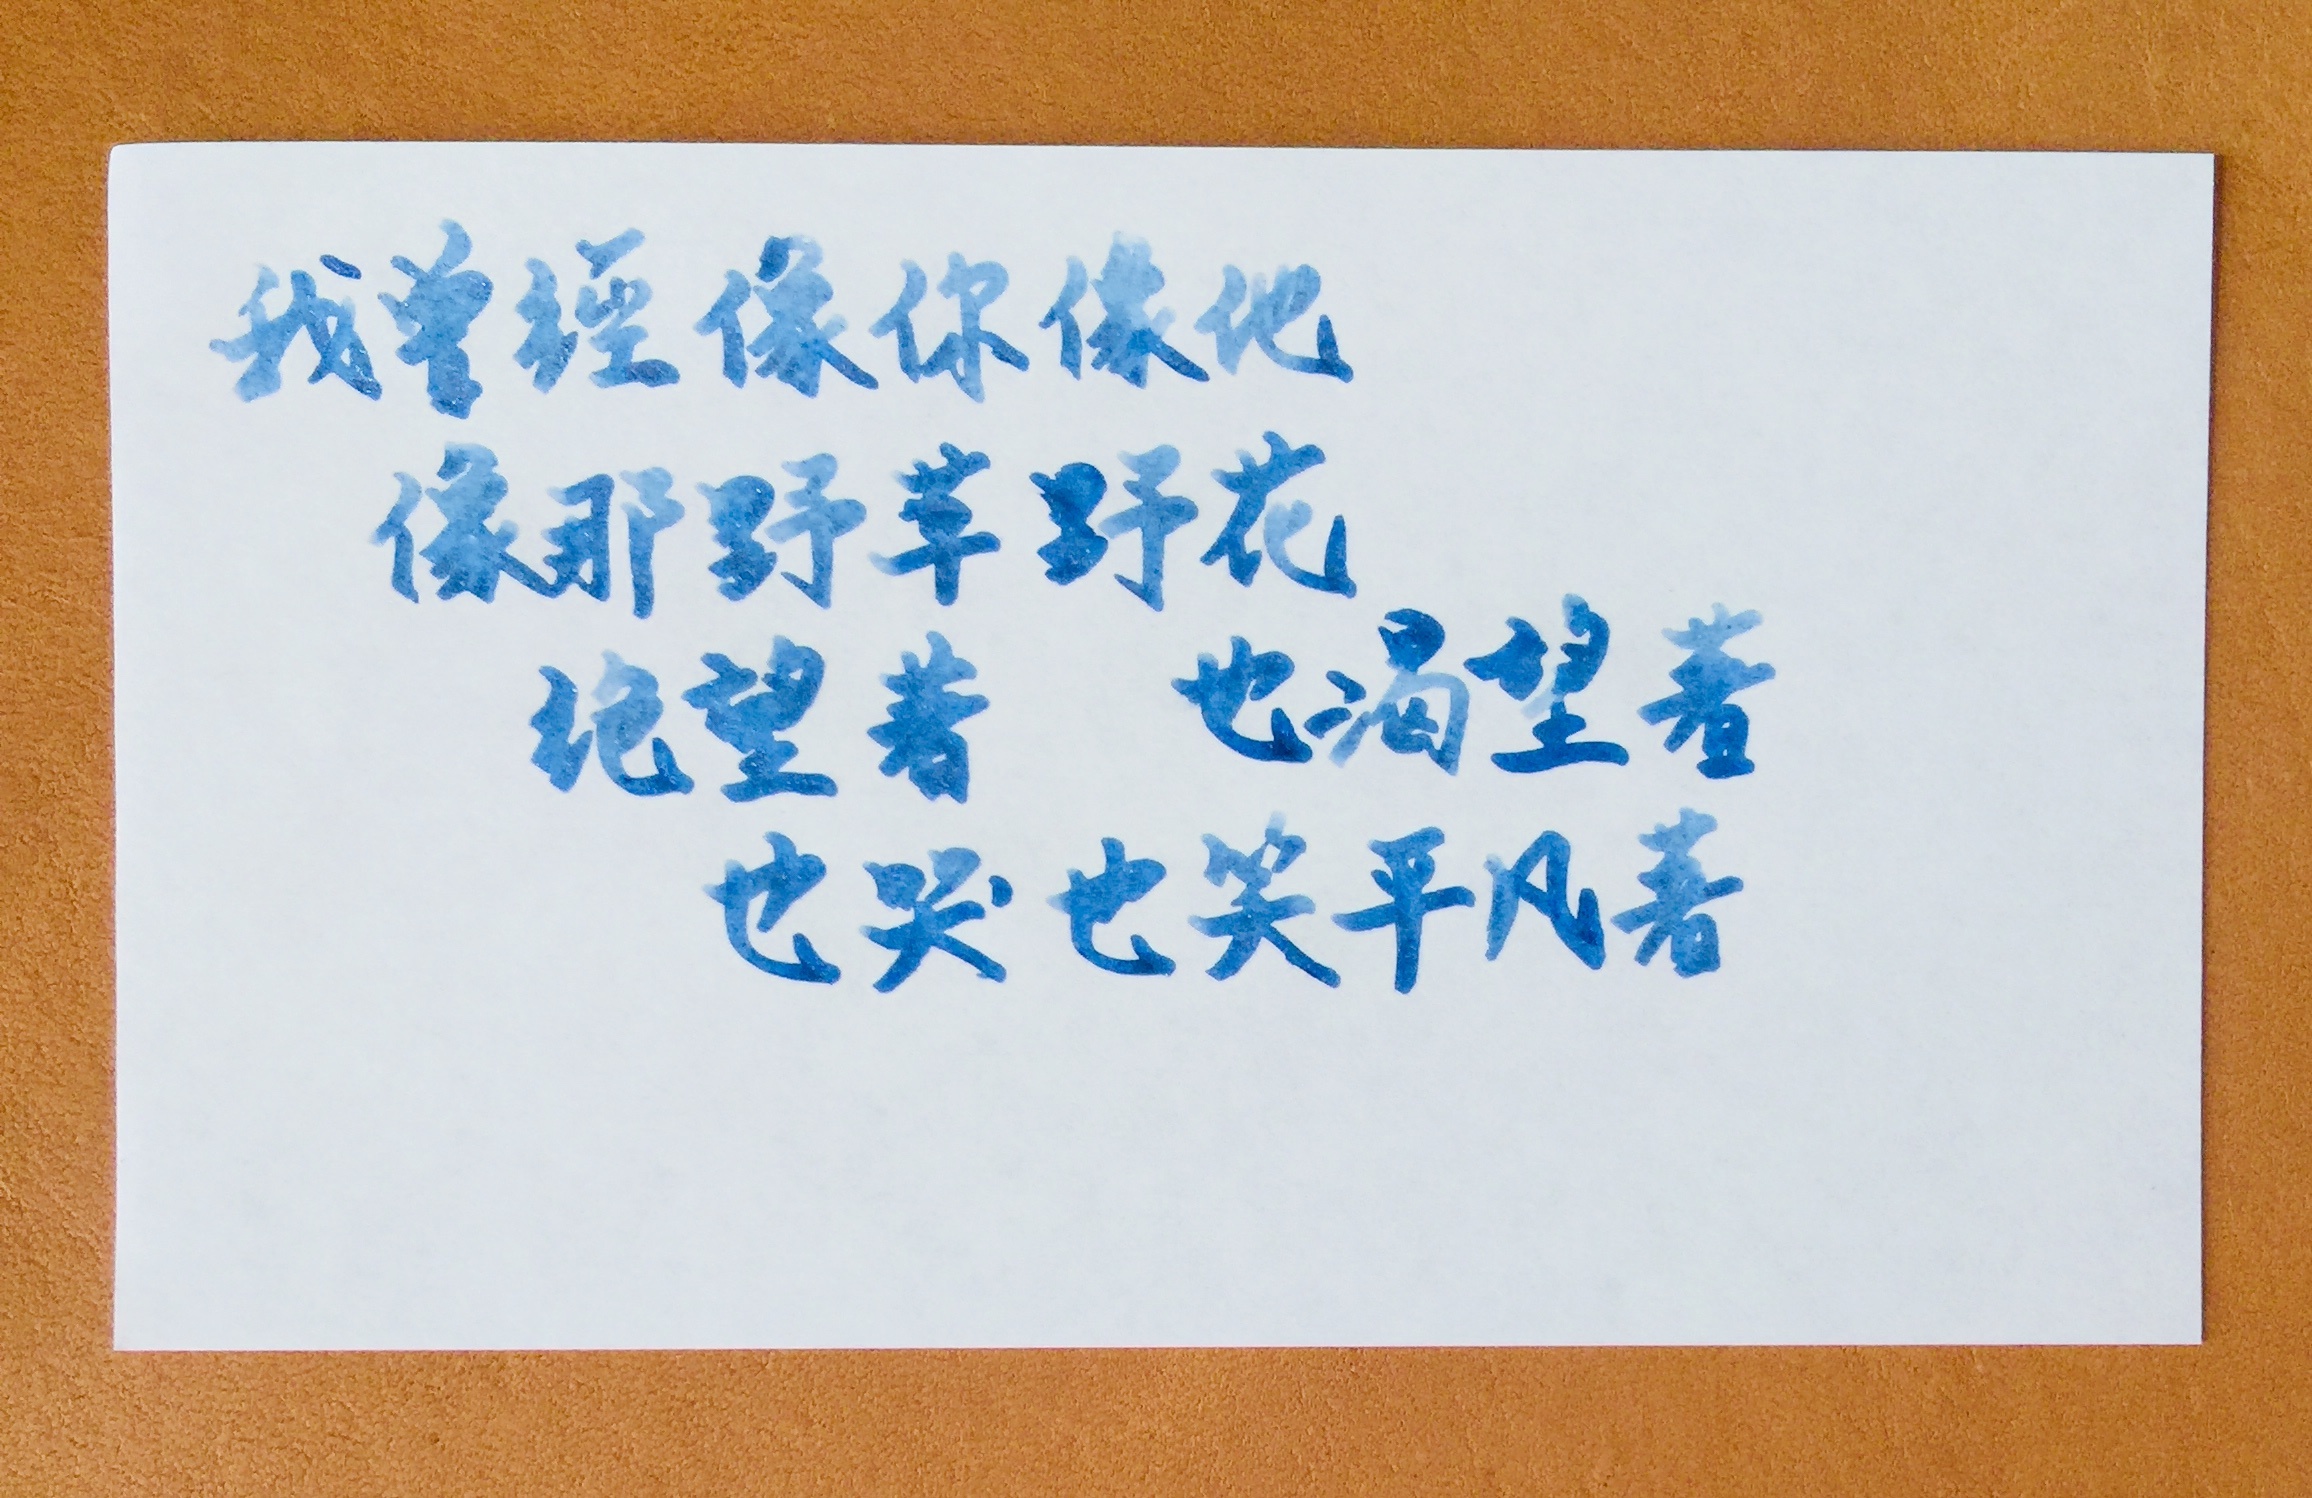 我曾經像你像他
像那野草野花
绝望著 也渴望著
也哭也笑平凡著